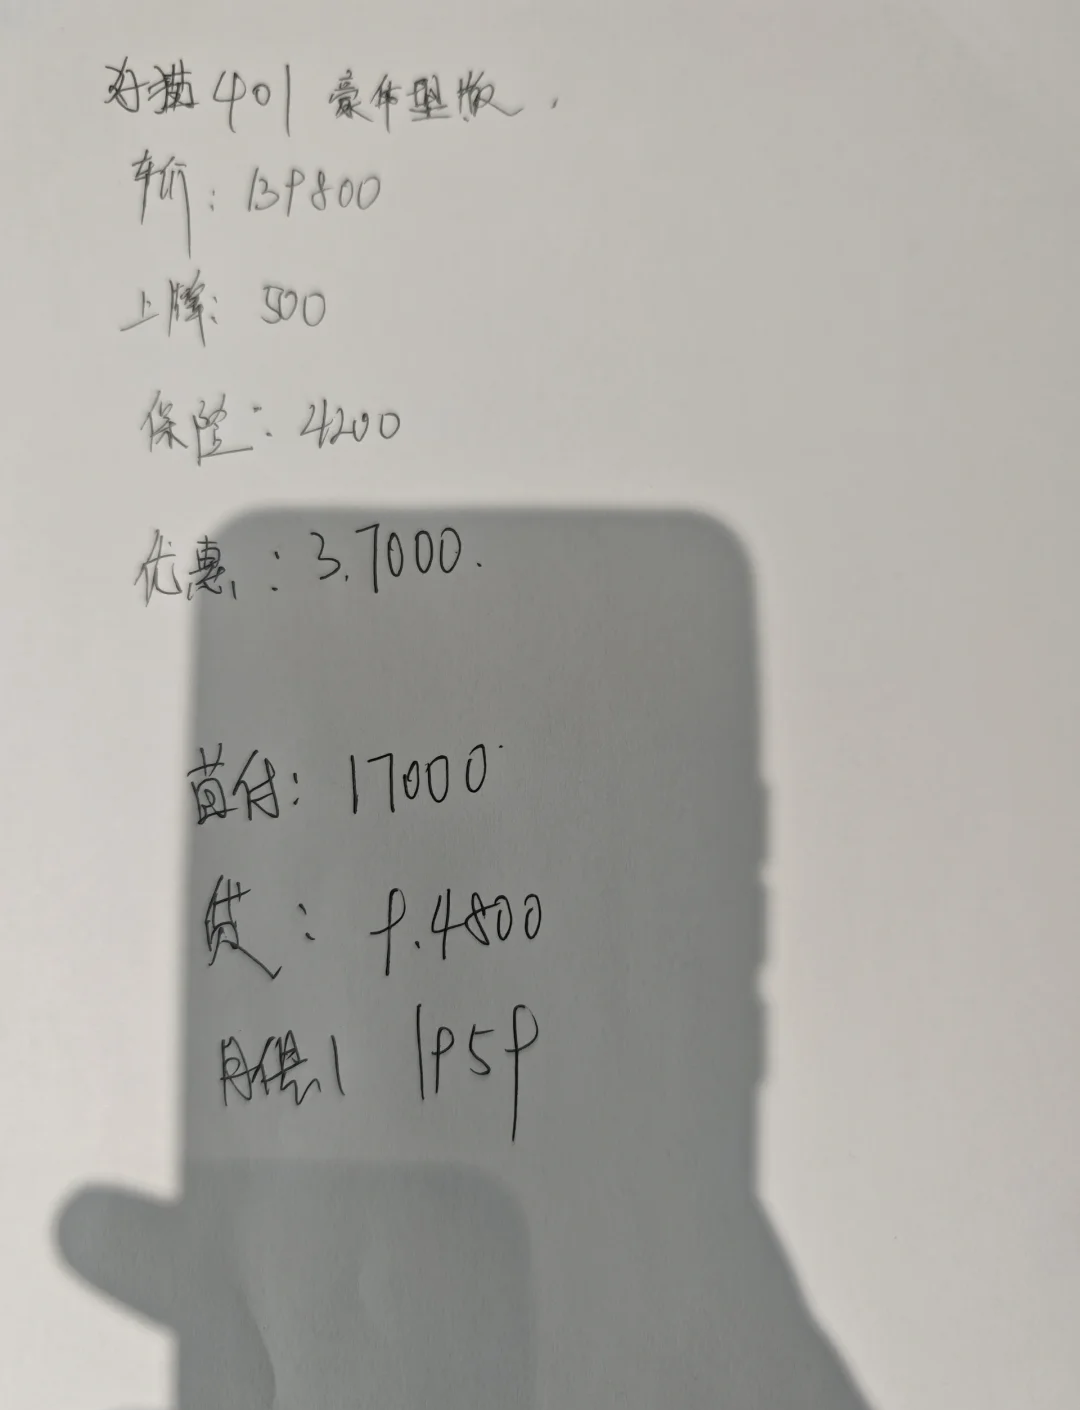 好猫401豪华型版.
车价:139800
上牌:500
保险:4200
优惠:3.7000.
首付:17000
贷:9.4800
月供1 1959